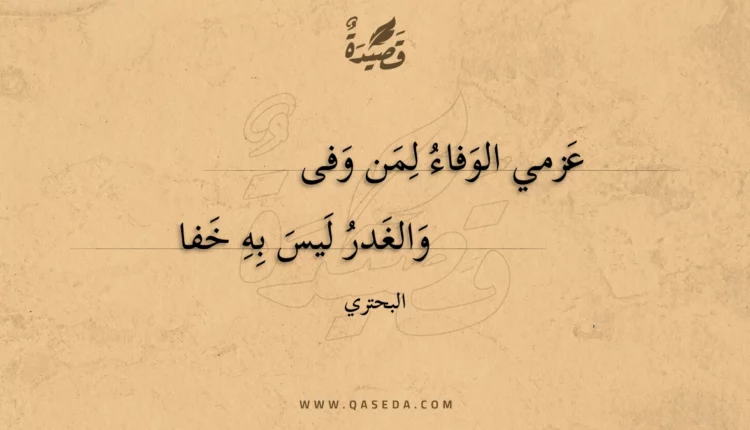 قَصِيْدَةٌ
عَزمي الوَفاءُ لِمَن وَفى
وَالغَدرُ لَيسَ بِهِ خَفا
البحتري
WWW.QASEDA.COM